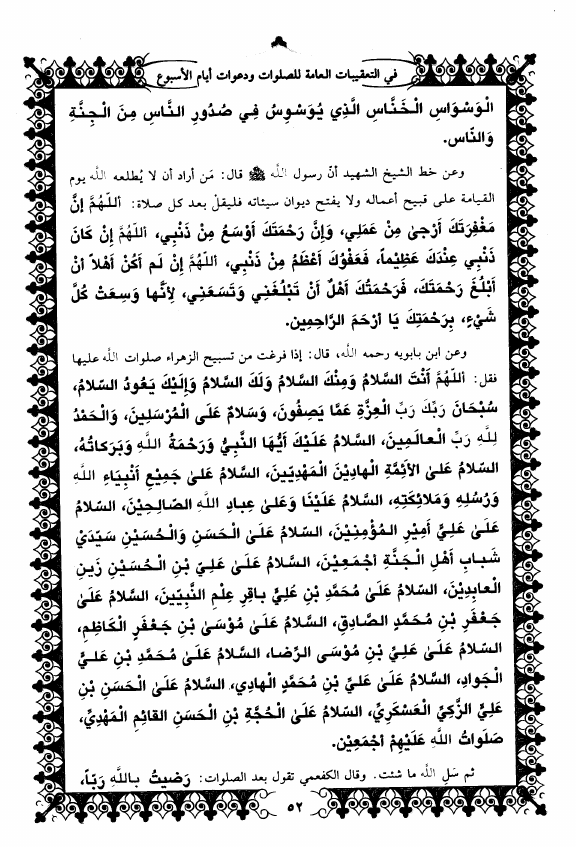 في التعقيبات العامة للصلوات ودعوات أيام الأسبوع
الْوَسْوَاسِ الْخَنَّاسِ الَّذِي يُوَسْوِسُ فِي صُدُورِ النَّاسِ مِنَ الْجِنَّةِ
وَالنّاس.
وعن خط الشيخ الشهيد أنّ رسول الله ﷺ قال: مَن أراد أن لا يُطلعه الله يوم
القيامة على قبيح أعماله ولا يفتح ديوان سيئاته فليقلْ بعد كل صلاة: أللهُمَّ إنَّ
مَغْفِرَتَكَ أَرْجىٰ مِنْ عَمَلِي، وَإِنَّ رَحْمَتَكَ أَوْسَعُ مِنْ ذَنْبِي، أللهُمَّ إنْ كَانَ
ذَنْبِي عِنْدَكَ عَظِيْماً، فَعَفْوُكَ أَعْظَمُ مِنْ ذَنْبِي، أللهُمَّ إنْ لَم أَكُنْ أَهلاً أنْ
أَبْلُغَ رَحْمَتَكَ، فَرَحْمَتُكَ أَهْلٌ أَنْ تَبْلُغَنِي وَتَسَعَنِي، لِأَنَّها وَسِعَتْ كُلَّ
شَيْءٍ، بِرَحْمَتِكَ يَا أَرْحَمَ الرَّاحِمِين.
وعن ابن بابويه رحمه الله، قال: إذا فرغت من تسبيح الزهراء صلوات الله عليها
نقل: أللهُمَّ أَنْتَ السَّلامُ وَمِنْكَ السَّلامُ وَلَكَ السَّلامُ وَإِلَيْكَ يَعُودُ السَّلامُ،
سُبْحَانَ رَبِّكَ رَبِّ الْعِزَّةِ عَمَّا يَصِفُونَ، وَسَلامٌ عَلَى الْمُرْسَلِينَ، وَالْحَمْدُ
لِلَّهِ رَبِّ الْعالَمِينَ، السَّلامُ عَلَيْكَ أَيُّهَا النَّبِيُّ وَرَحْمَةُ اللهِ وَبَرَكاتُهُ،
السَّلامُ عَلَىٰ الأَئِمَّةِ الْهادِيْنَ الْمَهْدِيّينَ، السَّلامُ عَلىٰ جَمِيْعِ أَنْبِيَاءِ اللهِ
وَرُسُلِهِ وَمَلائِكَتِهِ، السَّلامُ عَلَيْنَا وَعَلىٰ عِبادِ اللهِ الصّالِحِيْنَ، السَّلامُ
عَلَىٰ عَلِيٍّ أَمِيْرِ الْمُؤْمِنِيْنَ، السَّلامُ عَلَىٰ الْحَسَنِ وَالْحُسَيْنِ سَيّدَيْ
شَبابِ أَهْلِ الْجَنَّةِ أَجْمَعِيْنَ، السَّلامُ عَلَىٰ عَلِيّ بْنِ الْحُسَيْنِ زَينِ
الْعابِدِيْنَ، السَّلامُ عَلَىٰ مُحَمَّدِ بْنِ عَلِيٍّ باقِرِ عِلْمِ النَّبِيّينَ، السَّلامُ عَلَىٰ
جَعْفَرِ بْنِ مُحَمَّدٍ الصَّادِقِ، السَّلامُ عَلَىٰ مُوْسَىٰ بْنِ جَعْفَرٍ الْكَاظِمِ،
السَّلامُ عَلَىٰ عَلِيّ بْنِ مُوْسَى الرِّضا، السَّلامُ عَلَىٰ مُحَمَّدِ بْنِ عَلِيٍّ
الْجَوادِ، السَّلامُ عَلَىٰ عَلِيّ بْنِ مُحَمَّدٍ الْهادِي، السَّلامُ عَلَىٰ الْحَسَنِ بْنِ
عَلِيٍّ الزَّكِيّ الْعَسْكَرِيّ، السَّلامُ عَلَىٰ الْحُجَّةِ بْنِ الْحَسَنِ القائِمِ الْمَهْدِيّ،
صَلَواتُ اللهِ عَلَيْهِمْ أَجْمَعِيْن.
ثم سَلِ الله ما شئت. وقال الكفعمي تقول بعد الصلوات: رَضِيتُ بِاللهِ رَبّاً،
٥٢